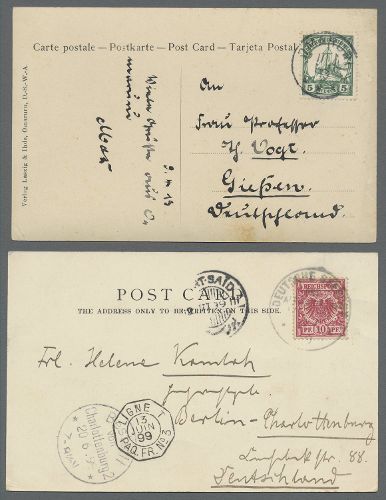 Carte postale — Postkarte — Post Card — Tarjeta Postal
5 5
An
Frau Professor
Th. Vogt.
Gießen.
Deutschland.
Viele Grüße aus
Verlag Lessig & Hola, Omaruru, D.-S.-W.-A
POST CARD
THE ADDRESS ONLY TO BE WRITTEN ON THIS SIDE.
PORT-SAID
DEUTSCHE
REICHSPOST
PF 10 PF
Frl. Helene
Berlin-Charlottenburg
88.
Deutschland
LIGNE T
13
JUIN
99
PAQ. FR. No 3
Charlottenburg
20 6